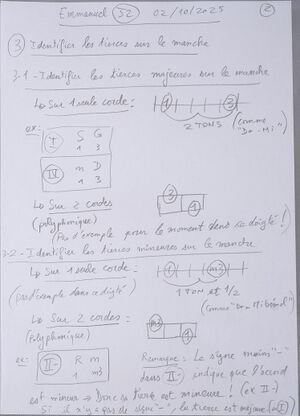 Emmanuel S2 02/10/2025 2
3 Identifier les tierces sur le manche
3.1 - Identifier les tierces majeures sur le manche
↳ Sur 1 seule corde: 1 3
2 TONS (comme "Do-Mi")
ex: I S G
1 3
IV m D
1 3
↳ Sur 2 cordes 3
(polyphonique) 1
(Pas d'exemple pour le moment dans ce doigté!)
3-2 - Identifier les tierces mineures sur le manche
↳ Sur 1 seule corde: 1 m3
(pas d'exemple dans ce doigté) 1 TON et 1/2
(comme "Do-Mi bémol")
↳ Sur 2 cordes: m3
(polyphonique) 1
ex: II- R m
1 m3
Remarque: Le signe moins "-"
dans II- indique que l'accord
est mineur → Donc sa tierce est mineure! (ex II-)
Si il n'y a pas de signe "-", la tierce est majeure (ex I)